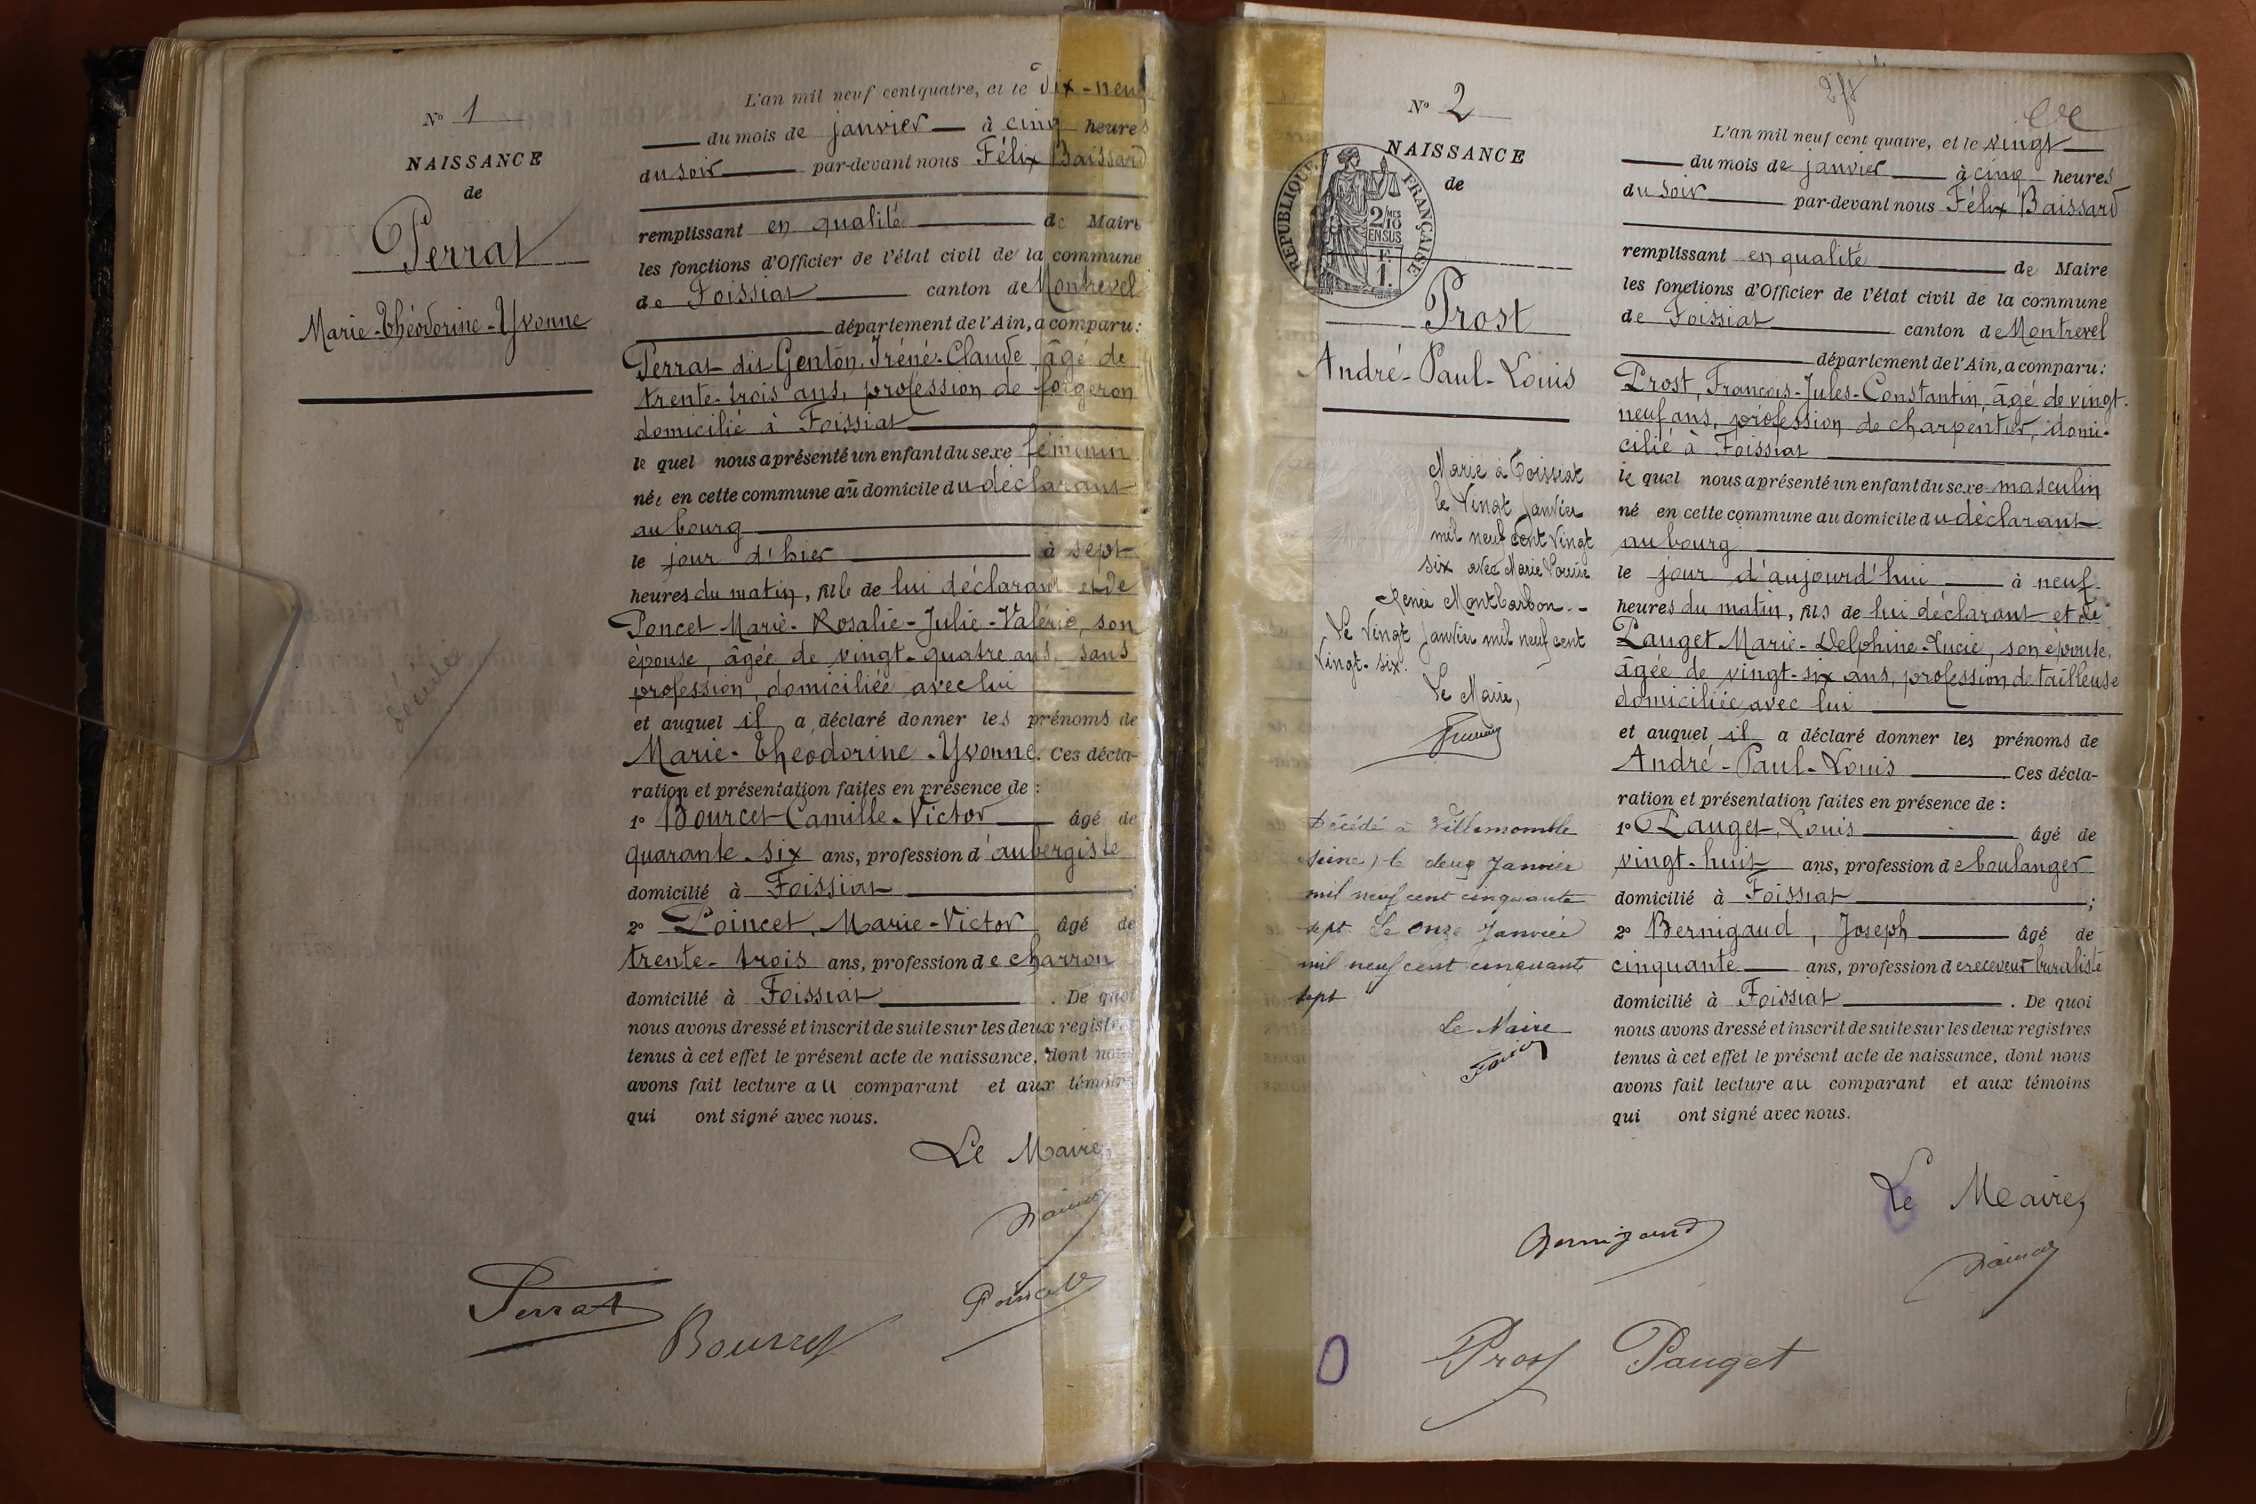 N° 1
NAISSANCE
de
Perrat
Marie-Théodorine-Yvonne
décédée
L'an mil neuf cent quatre, et le dix-neuf
du mois de janvier à cinq heures
du soir par-devant nous Félix Baissard
remplissant en qualité de Maire
les fonctions d'Officier de l'état civil de la commune
de Foissiat canton de Montrevel
département de l'Ain, a comparu:
Perrat dit Genton, Iréné-Claude, âgé de
trente-trois ans, profession de forgeron
domicilié à Foissiat
le quel nous a présenté un enfant du sexe féminin
née en cette commune au domicile du déclarant
au bourg
le jour d'hier à sept
heures du matin, fille de lui déclarant et de
Poncet Marie-Rosalie-Julie-Valérie, son
épouse, âgée de vingt-quatre ans, sans
profession, domiciliée avec lui
et auquel il a déclaré donner les prénoms de
Marie-Théodorine-Yvonne. Ces décla-
ration et présentation faites en présence de :
1° Bourcet Camille-Victor âgé de
quarante-six ans, profession d'aubergiste
domicilié à Foissiat ;
2° Poincet, Marie-Victor âgé de
trente-trois ans, profession de charron
domicilié à Foissiat . De quoi
nous avons dressé et inscrit de suite sur les deux registres
tenus à cet effet le présent acte de naissance, dont nous
avons fait lecture au comparant et aux témoins
qui ont signé avec nous.
Le Maire,
Perrat
Bourcet
Poincet
N° 2
NAISSANCE
de
RÉPUBLIQUE FRANÇAISE
2/10 MES
EN SUS
F.
1.
Prost
André-Paul-Louis
Marié à Foissiat
le Vingt Janvier
mil neuf cent vingt
six avec Marie Louise
Renée Montbarbon.-
Le Vingt Janvier mil neuf cent
Vingt-six.
Le Maire,
Décédé à Villemomble
(Seine) le deux Janvier
mil neuf cent cinquante
sept. Le onze Janvier
mil neuf cent cinquante
sept
Le Maire
L'an mil neuf cent quatre, et le vingt
du mois de janvier à cinq heures
du soir par-devant nous Félix Baissard
remplissant en qualité de Maire
les fonctions d'Officier de l'état civil de la commune
de Foissiat canton de Montrevel
département de l'Ain, a comparu:
Prost, François-Jules-Constantin, âgé de vingt-
neuf ans, profession de charpentier, domi-
cilié à Foissiat
le quel nous a présenté un enfant du sexe masculin
né en cette commune au domicile du déclarant
au bourg
le jour d'aujourd'hui à neuf
heures du matin, fils de lui déclarant et de
Pauget Marie-Delphine-Lucie, son épouse,
âgée de vingt-six ans, profession de tailleuse
domiciliée avec lui
et auquel il a déclaré donner les prénoms de
André-Paul-Louis Ces décla-
ration et présentation faites en présence de :
1° Pauget, Louis âgé de
vingt-huit ans, profession de boulanger
domicilié à Foissiat ;
2° Bernigaud, Joseph âgé de
cinquante ans, profession de receveur buraliste
domicilié à Foissiat . De quoi
nous avons dressé et inscrit de suite sur les deux registres
tenus à cet effet le présent acte de naissance, dont nous
avons fait lecture au comparant et aux témoins
qui ont signé avec nous.
Le Maire,
Bernigaud
Prost
Pauget